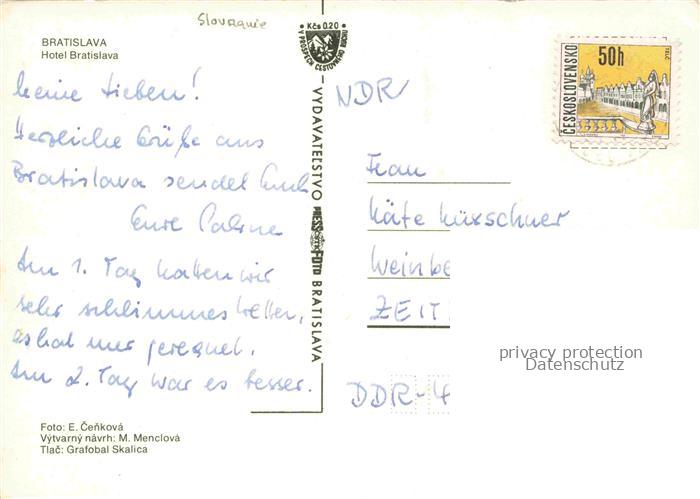 Slovaquie
BRATISLAVA
Hotel Bratislava
Kčs 0.20
V PROSPECH CESTOVNÉHO RUCHU
Meine Lieben!
Herzliche Grüße aus
Bratislava sendet Euch
Eure
Am 1. Tag hatten wir
sehr schlimmes Wetter,
es hat nur geregnet.
Am 2. Tag war es besser.
Foto: E. Čeňková
Výtvarný návrh: M. Menclová
Tlač: Grafobal Skalica
VYDAVATEĽSTVO PRESSFOTO BRATISLAVA
ČESKOSLOVENSKO
50h
TELČ
NDR
Frau
Käte Kürschner
Weinbe
ZEIT
DDR-4
privacy protection
Datenschutz